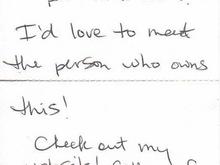 I'd love to meet
the person who owns
this!
Check out my